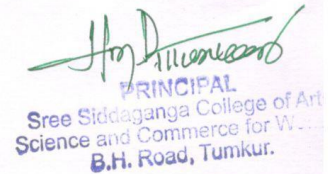 PRINCIPAL
Sree Siddaganga College of Art
Science and Commerce for W
B.H. Road, Tumkur.